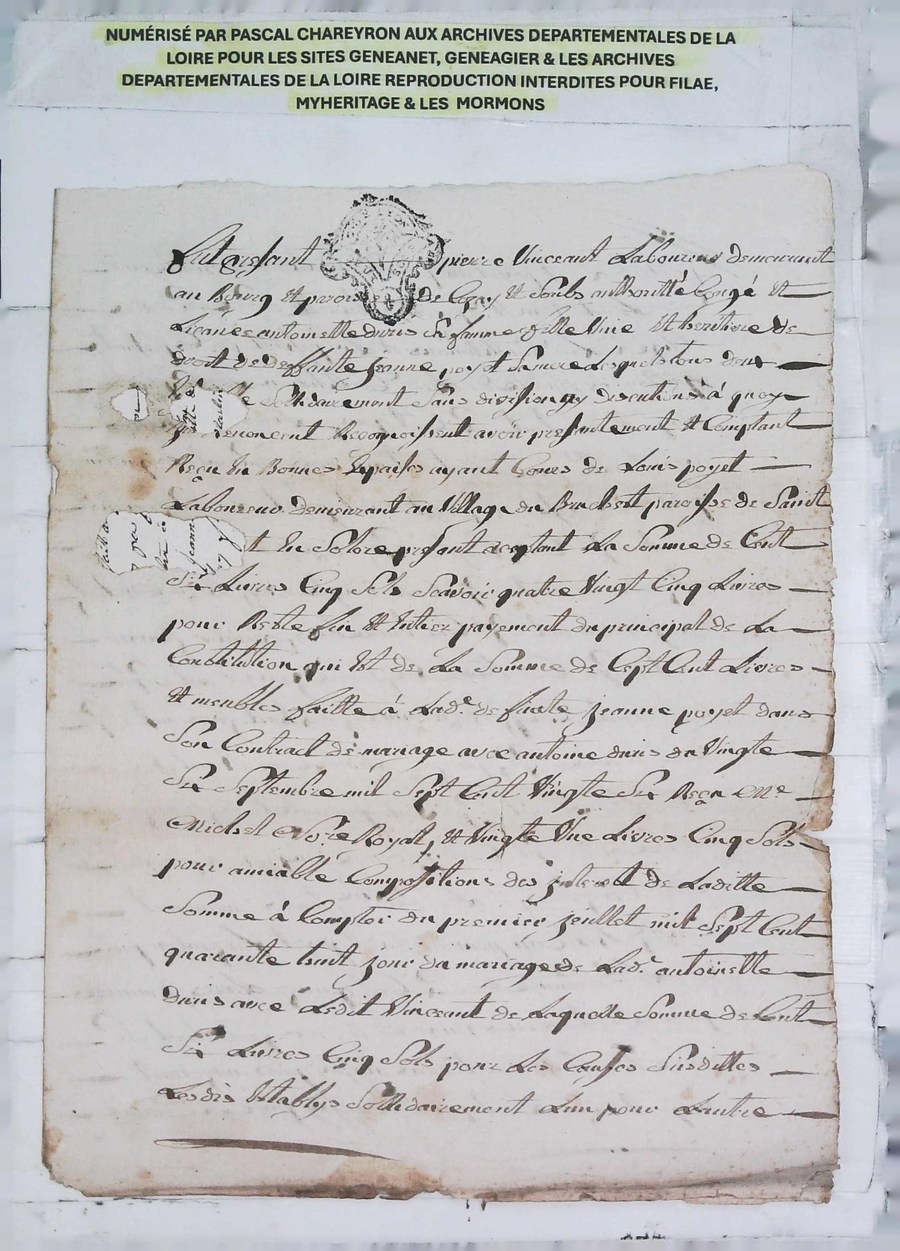 NUMÉRISÉ PAR PASCAL CHAREYRON AUX ARCHIVES DEPARTEMENTALES DE LA
LOIRE POUR LES SITES GENEANET, GENEAGIER & LES ARCHIVES
DEPARTEMENTALES DE LA LOIRE REPRODUCTION INTERDITES POUR FILAE,
MYHERITAGE & LES MORMONS
pierre Vinceant Laboureur demeurant
au Bourg Et parois de Cezay Et Soubs authoritté Congé Et
antoinette duris Sa famme fille Unie Et heritiere de
droit de deffunte jeanne poyet Sa mere Lesquels tous deux
Sollidairement Sans division ny discutions à quoy
Renoncent Recognoissent avoir presentement Et Comptant
Reçu En Bonnes Espaises ayant Cours de Louis poyet
Laboureur demeurant au Village du paroisse de Saint
t En Solore presant aceptant La Somme de Cent
Six Livres Cinq Sols Scavoir quatre Vingt Cinq Livres
pour Reste fin Et Entier payement du principal de La
Constitution qui Est de La Somme de Sept Cent Livres
Et meubles faitte à Lade. defuete jeanne poyet dans
Son Contract de mariage avec antoine duris du Vingte
Six Septembre mil Sept Cent Vingte Six Reçu Me
Michel Nore Royal, Et Vingte Une Livres Cinq Sols
pour amiable Compositions des interett de Laditte
Somme à Compter du premier jeullet mil Sept Cent
quarante huit jour du mariage de Lade. antoinette
duris avec Ledit Vinceant de Laquelle Somme de Cent
Six Livres Cinq Sols pour Les Causes Susdittes
Lesdis Etablys Sollidairement Lun pour Lautre